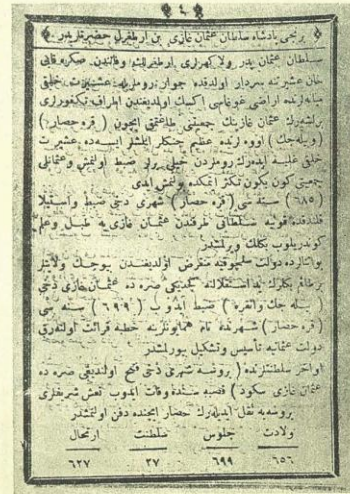 ﴿ ٤ ﴾
برنجی پادشاه سلطان عثمان غازی بن ارطغرل حضرتلریدر
سلطان عثمان پدر ولاکهرلری ارطغرلبك وفاتندن صکره قایی
خان عشیرتنه سردار اولدقده جوار روملریله عشیرت خلقی
میانه‌لرنده اراضی غوغاسی اکسك اولدیغندن اطراف تکفورلری
برلشه‌رك عثمان غازینك جمعیتی طاغتمق ایچون ( قره‌حصار )
( وبیله‌جك ) اووه‌لرنده عظیم جنکلر ایلمشلر ایسه‌ده عشیرت
خلقی غلبه ایده‌رك روملردن خیلی یرلر ضبط اولنمش وعثمانلی
جمعیتی کون بکون تکثر ایتمکده بولنمش ایدی
( ٦٨٥ ) سنه سی ( قره حصار ) شهری دخی ضبط واستیلا
قلندقده قونیه سلطانی طرفندن عثمان غازی یه طبل وعلم
کوندریلوب بکلك ویرلمشدر
بواثناده دولت سلجوقیه منقرض اولدیغندن
طاقم بکلرك استقلالیه صره ده عثمان غازی دخی
( بیله جك ) ضبط ایدوب ( ٦٩٩ ) سنه سی
( قره حصار ) شهرنده نام همایونلرینه خطبه قرائت اولنه‌رق
دولت عثمانیه تأسیس وتشکیل بیورلمشدر
اواخر سلطنتلرنده ( بروسه شهری دخی فتح اولندیغی صره ده
عثمان غازی سکود ) قصبه سنده وفات ایدوب نعش شریفلری
بروسه‌یه نقل ایدیله‌رك حصار ایچنده دفن اولنمشدر
ولادت جلوس سلطنت ارتحال
٦٥٦ ٦٩٩ ٢٧ ٦٢٧